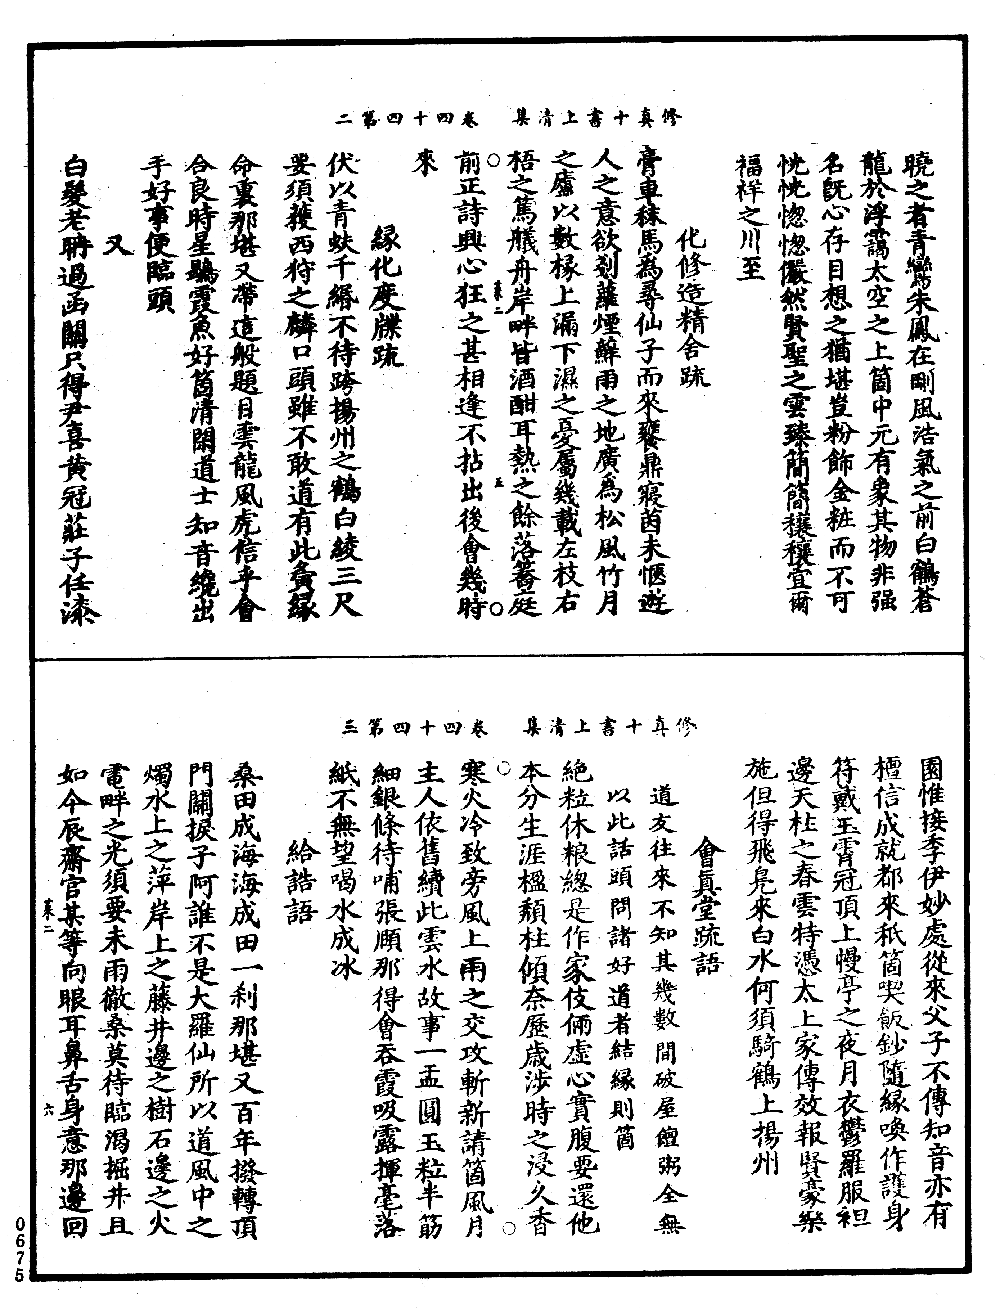 修真十書上清集　卷四十四第二
曉之者青鸞朱鳳在剛風浩氣之前白鶴蒼
龍於浮靄太空之上箇中元有象其物非强
名旣心存目想之猶堪豈粉飾金粧而不可
恍恍惚惚儼然賢聖之雲臻簡簡穰穰宜爾
福祥之川至
化修造精舍疏
膏車秣馬為尋仙子而來饔鼎寢茵未愜遊
人之意欲剗蘿煙薜雨之地廣為松風竹月
之廬以數椽上漏下濕之憂屬幾載左枝右
梧之篤艤舟岸畔皆酒酣耳熱之餘落簪庭
前正詩興心狂之甚相逢不拈出後會幾時
來
緣化度牒疏
伏以青蚨千緡不待跨揚州之鶴白綾三尺
要須獲西狩之麟口頭雖不敢道有此夤緣
命裏那堪又帶這般題目雲龍風虎信乎會
合良時星鷊霞魚好箇清閑道士知音纔出
手好事便臨頭
又
白髮老聃過函關只得尹喜黃冠莊子任漆
菉二
五
修真十書上清集　卷四十四第三
園惟接李伊妙處從來父子不傳知音亦有
檀信成就都來秖箇喫飯鈔隨緣喚作護身
符戴玉霄冠頂上幔亭之夜月衣鬱羅服袒
邊天杜之春雲特憑太上家傳效報賢豪樂
施但得飛鳧來白水何須騎鶴上揚州
會真堂疏語
道友往來不知其幾數間破屋饘粥全無
以此話頭問諸好道者結緣則箇
絶粒休粮總是作家伎倆虛心實腹要還他
本分生涯楹頹柱傾奈歷歲涉時之浸久香
寒火冷致旁風上雨之交攻斬新請箇風月
主人依舊續此雲水故事一盂圓玉粒半筯
細銀條待哺張頤那得會吞霞吸露揮毫落
紙不無望喝水成冰
給誥語
桑田成海海成田一刹那堪又百年撥轉頂
門關捩子阿誰不是大羅仙所以道風中之
燭水上之萍岸上之藤井邊之樹石邊之火
電畔之光須要未雨徹桑莫待臨渴掘井且
如今辰齋官某等向眼耳鼻舌身意那邊回
菉二
六
0675